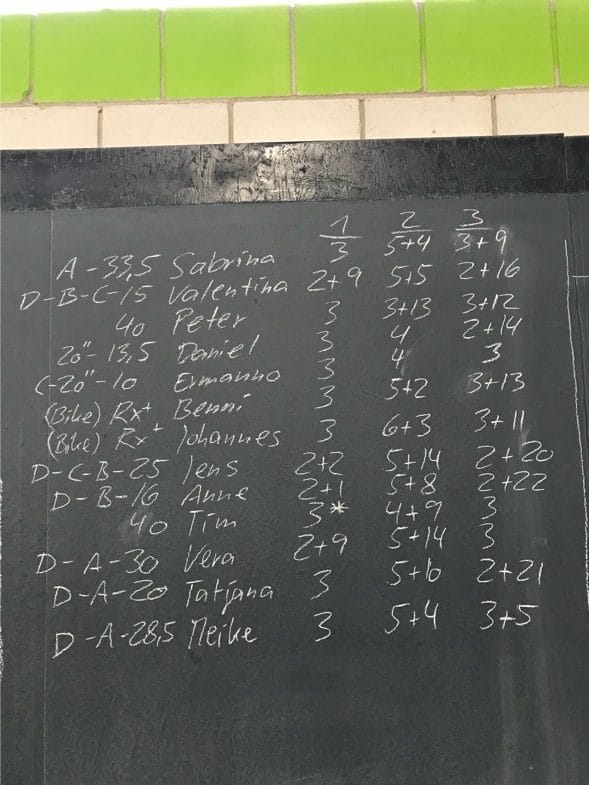 1 2 3
A-33,5 Sabrina 3 5+4 3+9
D-B-C-15 Valentina 2+9 5+5 2+16
40 Peter 3 3+13 3+12
20"-13,5 Daniel 3 4 2+14
C-20"-10 Ermanno 3 4 3
(Bike) Rx+ Benni 3 5+2 3+13
(Bike) Rx+ Johannes 3 6+3 3+11
D-C-B-25 Jens 2+2 5+14 2+20
D-B-16 Anne 2+1 5+8 2+22
40 Tim 3* 4+9 3
D-A-30 Vera 2+9 5+14 3
D-A-20 Tatjana 3 5+6 2+21
D-A-28,5 Meike 3 5+4 3+5